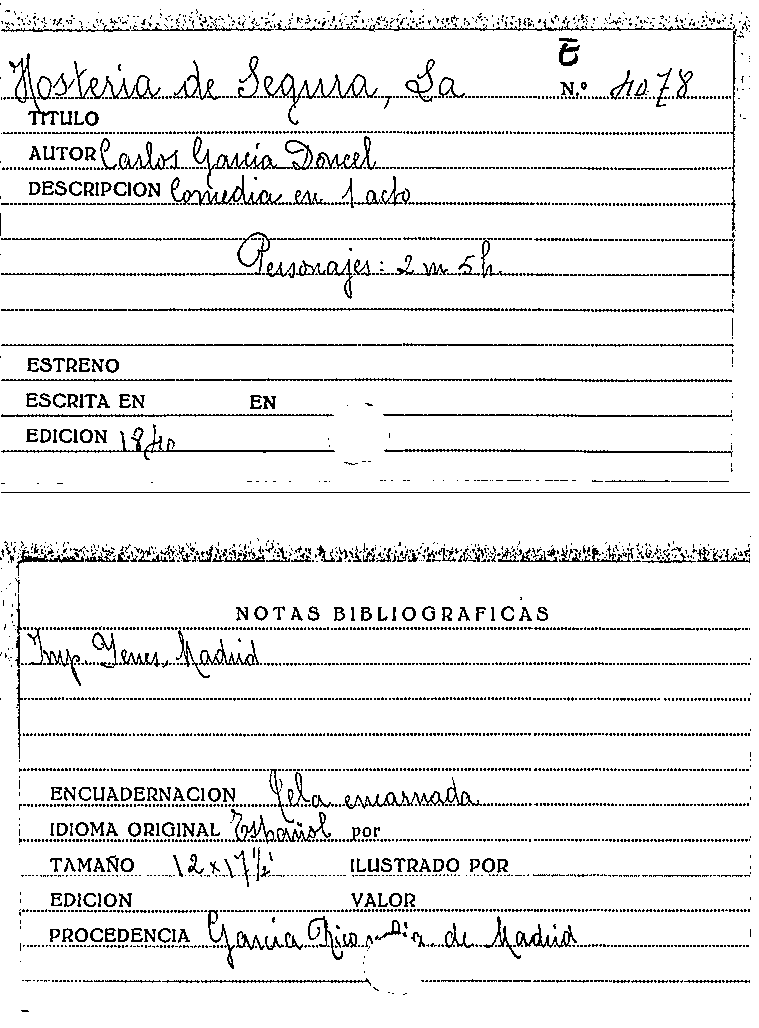 Hosteria de Segura, La
N.º 4078
TITULO
AUTOR Carlos García Doncel
DESCRIPCION Comedia en 1 acto
Personajes: 2 m 5h.
ESTRENO
ESCRITA EN EN
EDICION 1840
NOTAS BIBLIOGRAFICAS
Imp. Yenes, Madrid
ENCUADERNACION Tela encarnada
IDIOMA ORIGINAL Español por
TAMAÑO 12x17½ ILUSTRADO POR
EDICION VALOR
PROCEDENCIA García Rico de Madrid